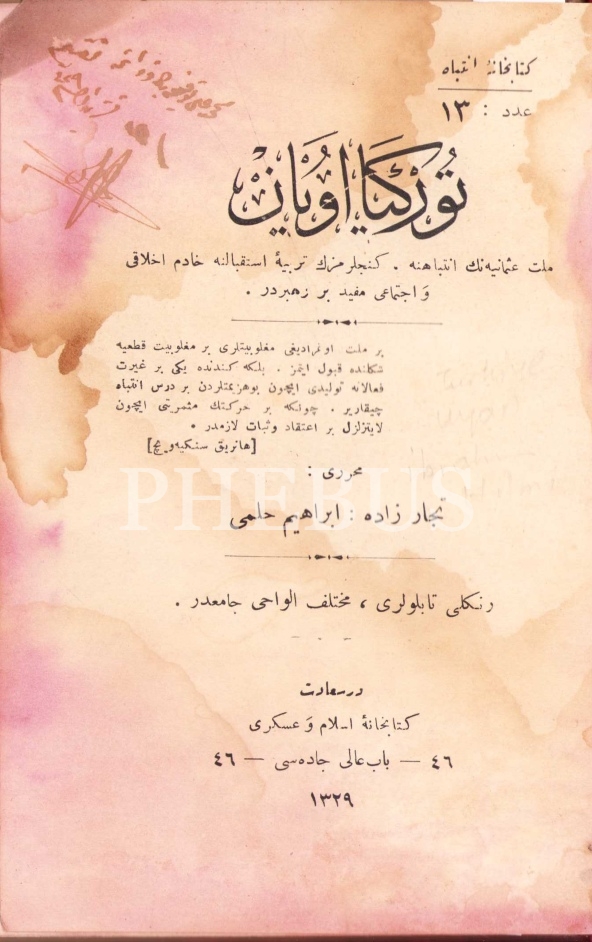 كتابخانهٔ انتباه
عدد : ١٣
تُوركيا اُويان
ملت عثمانيه‌نك انتباهنه ، كنجلرمزك تربيهٔ استقبالنه خادم اخلاقى
و اجتماعى مفيد بر رهبردر .
بر ملت اوغرادیغی مغلوبیتلری بر مغلوبیت قطعیه
شكلنده قبول ايتمز . بلكه كندنده يكى بر غيرت
فعالانه توليدى ايچون بوهزيمتلردن بر درس انتباه
چيقارير . چونكه بر حركتك مثمريتى ايچون
لايتزلزل بر اعتقاد وثبات لازمدر .
[هانريق سنكيه‌ويچ]
محررى :
تجار زاده : ابراهيم حلمى
رنكلى تابلولرى ، مختلف الواحى جامعدر .
درسعادت
كتابخانهٔ اسلام و عسكرى
٤٦ — باب عالى جاده‌سى — ٤٦
١٣٢٩
PHEBUS